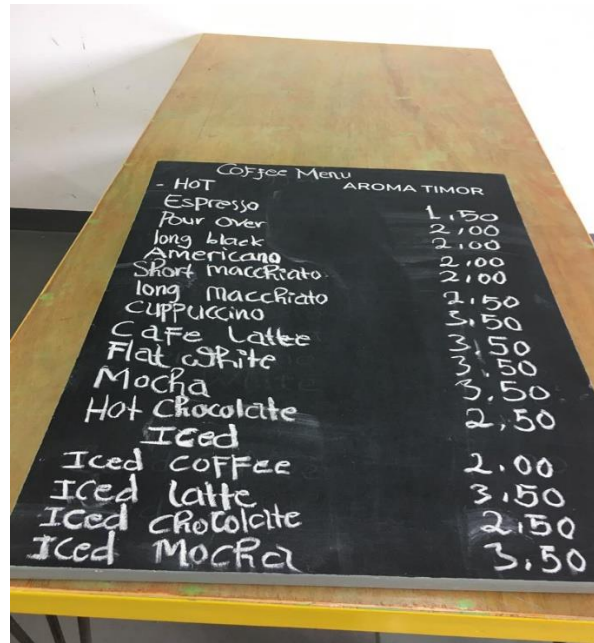 Coffee Menu
- HOT AROMA TIMOR
Espresso 1,50
Pour over 2,00
long black 2,00
Americano 2.00
Short macchiato 2,00
long macchiato 2,50
cuppuccino 3,50
Cafe Latte 3,50
Flat white 3,50
Mocha 3,50
Hot Chocolate 2,50
Iced
Iced COFFEE 2.00
Iced latte 3,50
Iced chocolate 2,50
Iced Mocha 3.50